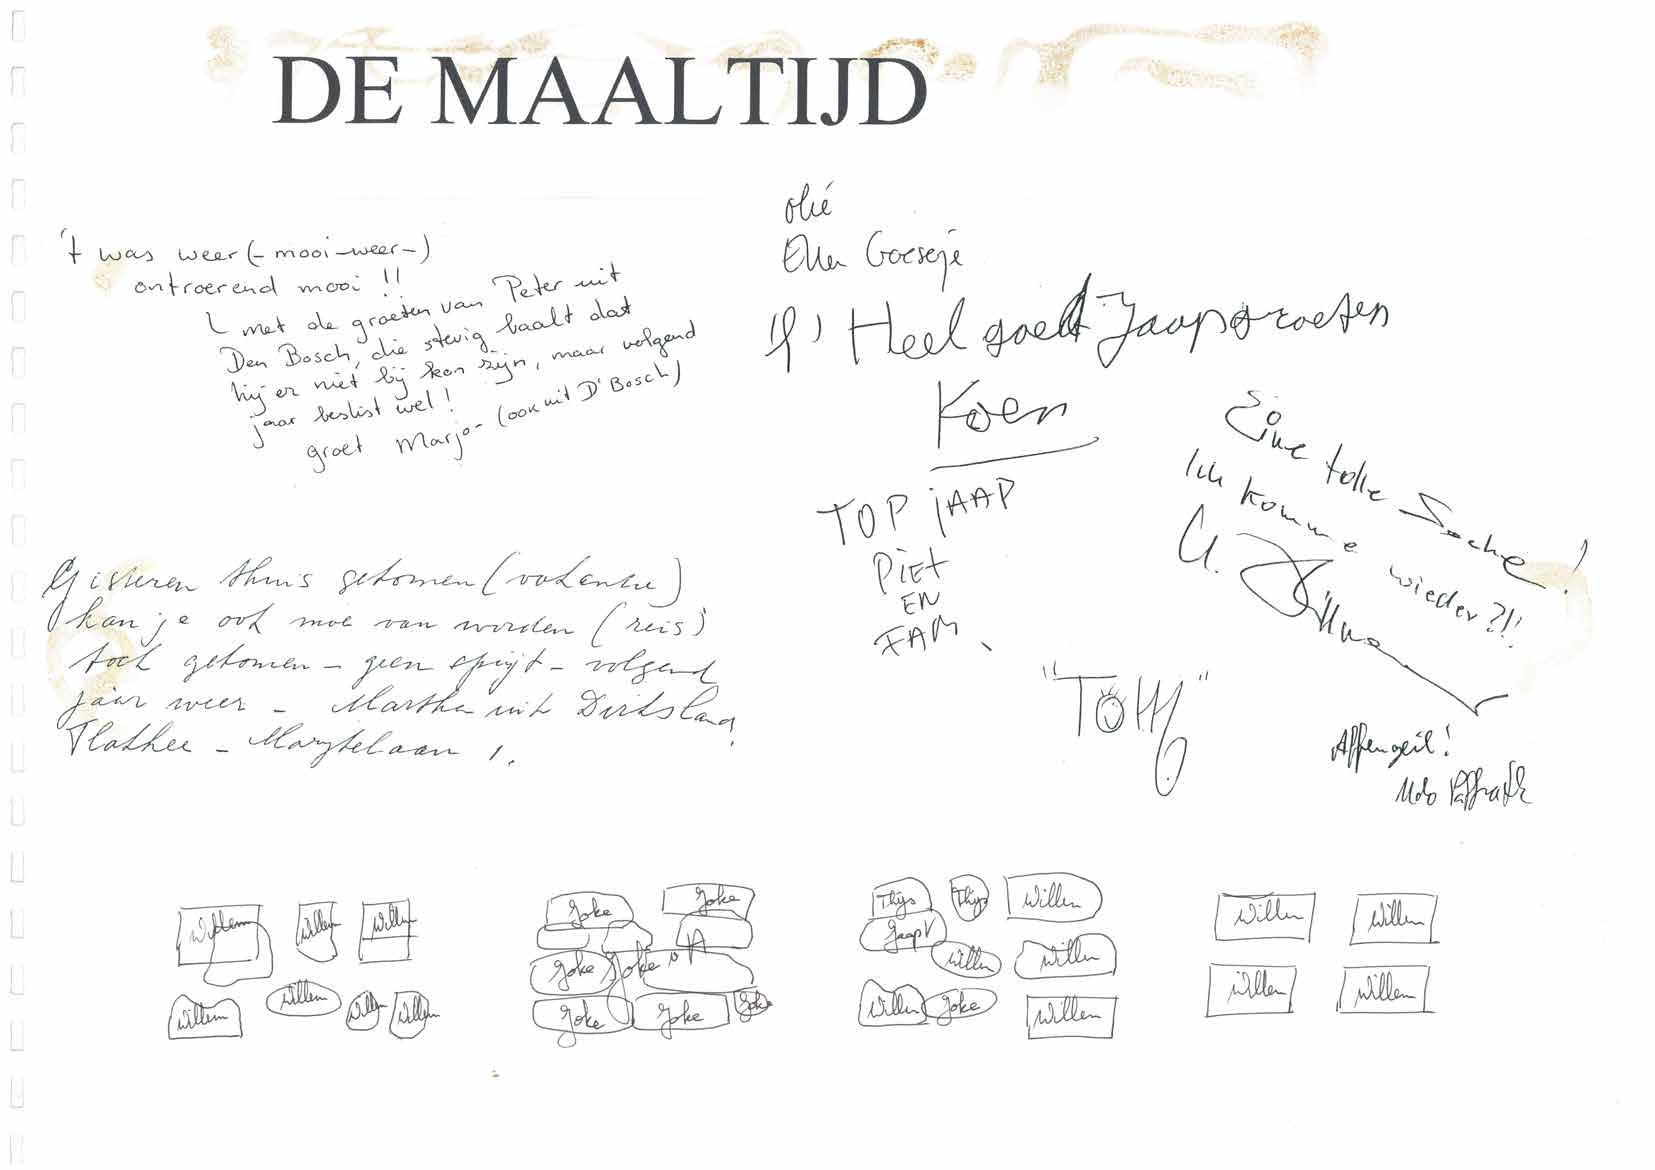 DE MAALTIJD
't was weer (- mooi-weer -)
ontroerend mooi !!
met de groeten van Peter uit
Den Bosch, die stevig baalt dat
hij er niet bij kon zijn, maar volgend
jaar beslist wel!
groet Marjo - (ook uit D'Bosch)
Gisteren thuis gekomen (vakantie)
kan je ook moe van worden (reis)
toch gekomen - geen spijt - volgend
jaar weer - Martha uit Dirksland
olé
Ellen
Heel goed Jaap groeten
Koen
TOP jAAP
PiET
EN
FAM.
Eine tolle Sache!
Ich komme wieder?!!
U.
Affengeil!
Udo
Willem Willem Willem
Willem Willem Willem Willem
Joke Joke
Joke Joke
Joke Joke Joke
Thijs Thijs Willem
Jaap V
Willem Willem
Willem Joke Willem
Willem Willem
Willem Willem